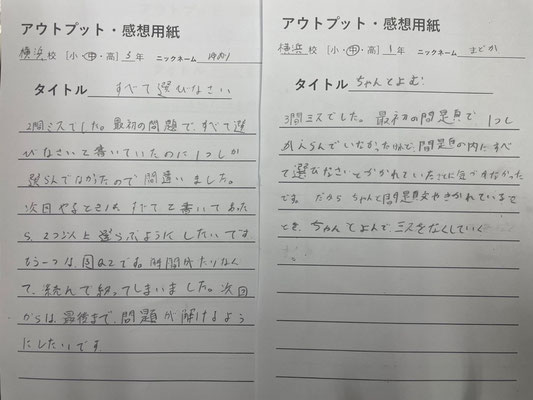 アウトプット・感想用紙
横浜校 [小・中・高] 3年 ニックネーム
タイトル すべて選びなさい
2問ミスでした。最初の問題で、すべて選
びなさいと書いていたのに1つしか
選らんでなかったので間違いました。
次回やるときは、すべてと書いてあった
ら、2つ以上選らぶようにしたいです
もう一つは、図のQ2です。時間がたりなく
て、読んで終ってしまいました。次回
からは、最後まで、問題が解けるよう
にしたいです
アウトプット・感想用紙
横浜校 [小・中・高] 1年 ニックネーム まどか
タイトル ちゃんとよむ
3問ミスでした。最初の問題で、1つし
かえらんでいなかったけど、問題の内にすべ
て選びなさいとかかれていたことに気づかなかった
です。だから ちゃんと問題文やきかれているこ
とを、ちゃんとよんで、ミスをなくしていく
。